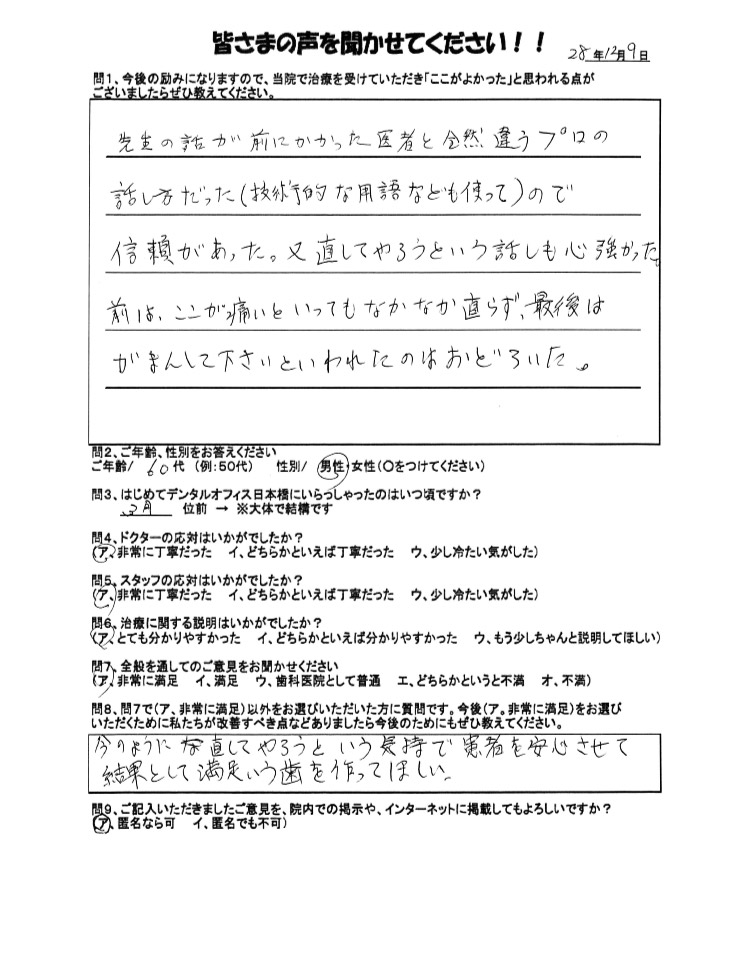 皆さまの声を聞かせてください！！
28年12月9日
問1、今後の励みになりますので、当院で治療を受けていただき「ここがよかった」と思われる点が
ございましたらぜひ教えてください。
先生の話が前にかかった医者と全然違うプロの
話し方だった(技術的な用語なども使って)ので
信頼があった。又直してやろうという話しも心強かった。
前は、ここが痛いといってもなかなか直らず、最後は
がまんして下さいといわれたのはおどろいた。
問2、ご年齢、性別をお答えください
ご年齢/ 60代 (例:50代) 性別/ 男性・女性(〇をつけてください)
問3、はじめてデンタルオフィス日本橋にいらっしゃったのはいつ頃ですか？
月 位前 → ※大体で結構です
問4、ドクターの応対はいかがでしたか？
(ア、非常に丁寧だった イ、どちらかといえば丁寧だった ウ、少し冷たい気がした)
問5、スタッフの応対はいかがでしたか？
(ア、非常に丁寧だった イ、どちらかといえば丁寧だった ウ、少し冷たい気がした)
問6、治療に関する説明はいかがでしたか？
(ア、とても分かりやすかった イ、どちらかといえば分かりやすかった ウ、もう少しちゃんと説明してほしい)
問7、全般を通してのご意見をお聞かせください
(ア、非常に満足 イ、満足 ウ、歯科医院として普通 エ、どちらかというと不満 オ、不満)
問8、問7で(ア、非常に満足)以外をお選びいただいた方に質問です。今後(ア。非常に満足)をお選び
いただくために私たちが改善すべき点などありましたら今後のためにもぜひ教えてください。
今のように直してやろうという気持で患者を安心させて
結果として満足いう歯を作ってほしい。
問9、ご記入いただきましたご意見を、院内での掲示や、インターネットに掲載してもよろしいですか？
(ア、匿名なら可 イ、匿名でも不可)